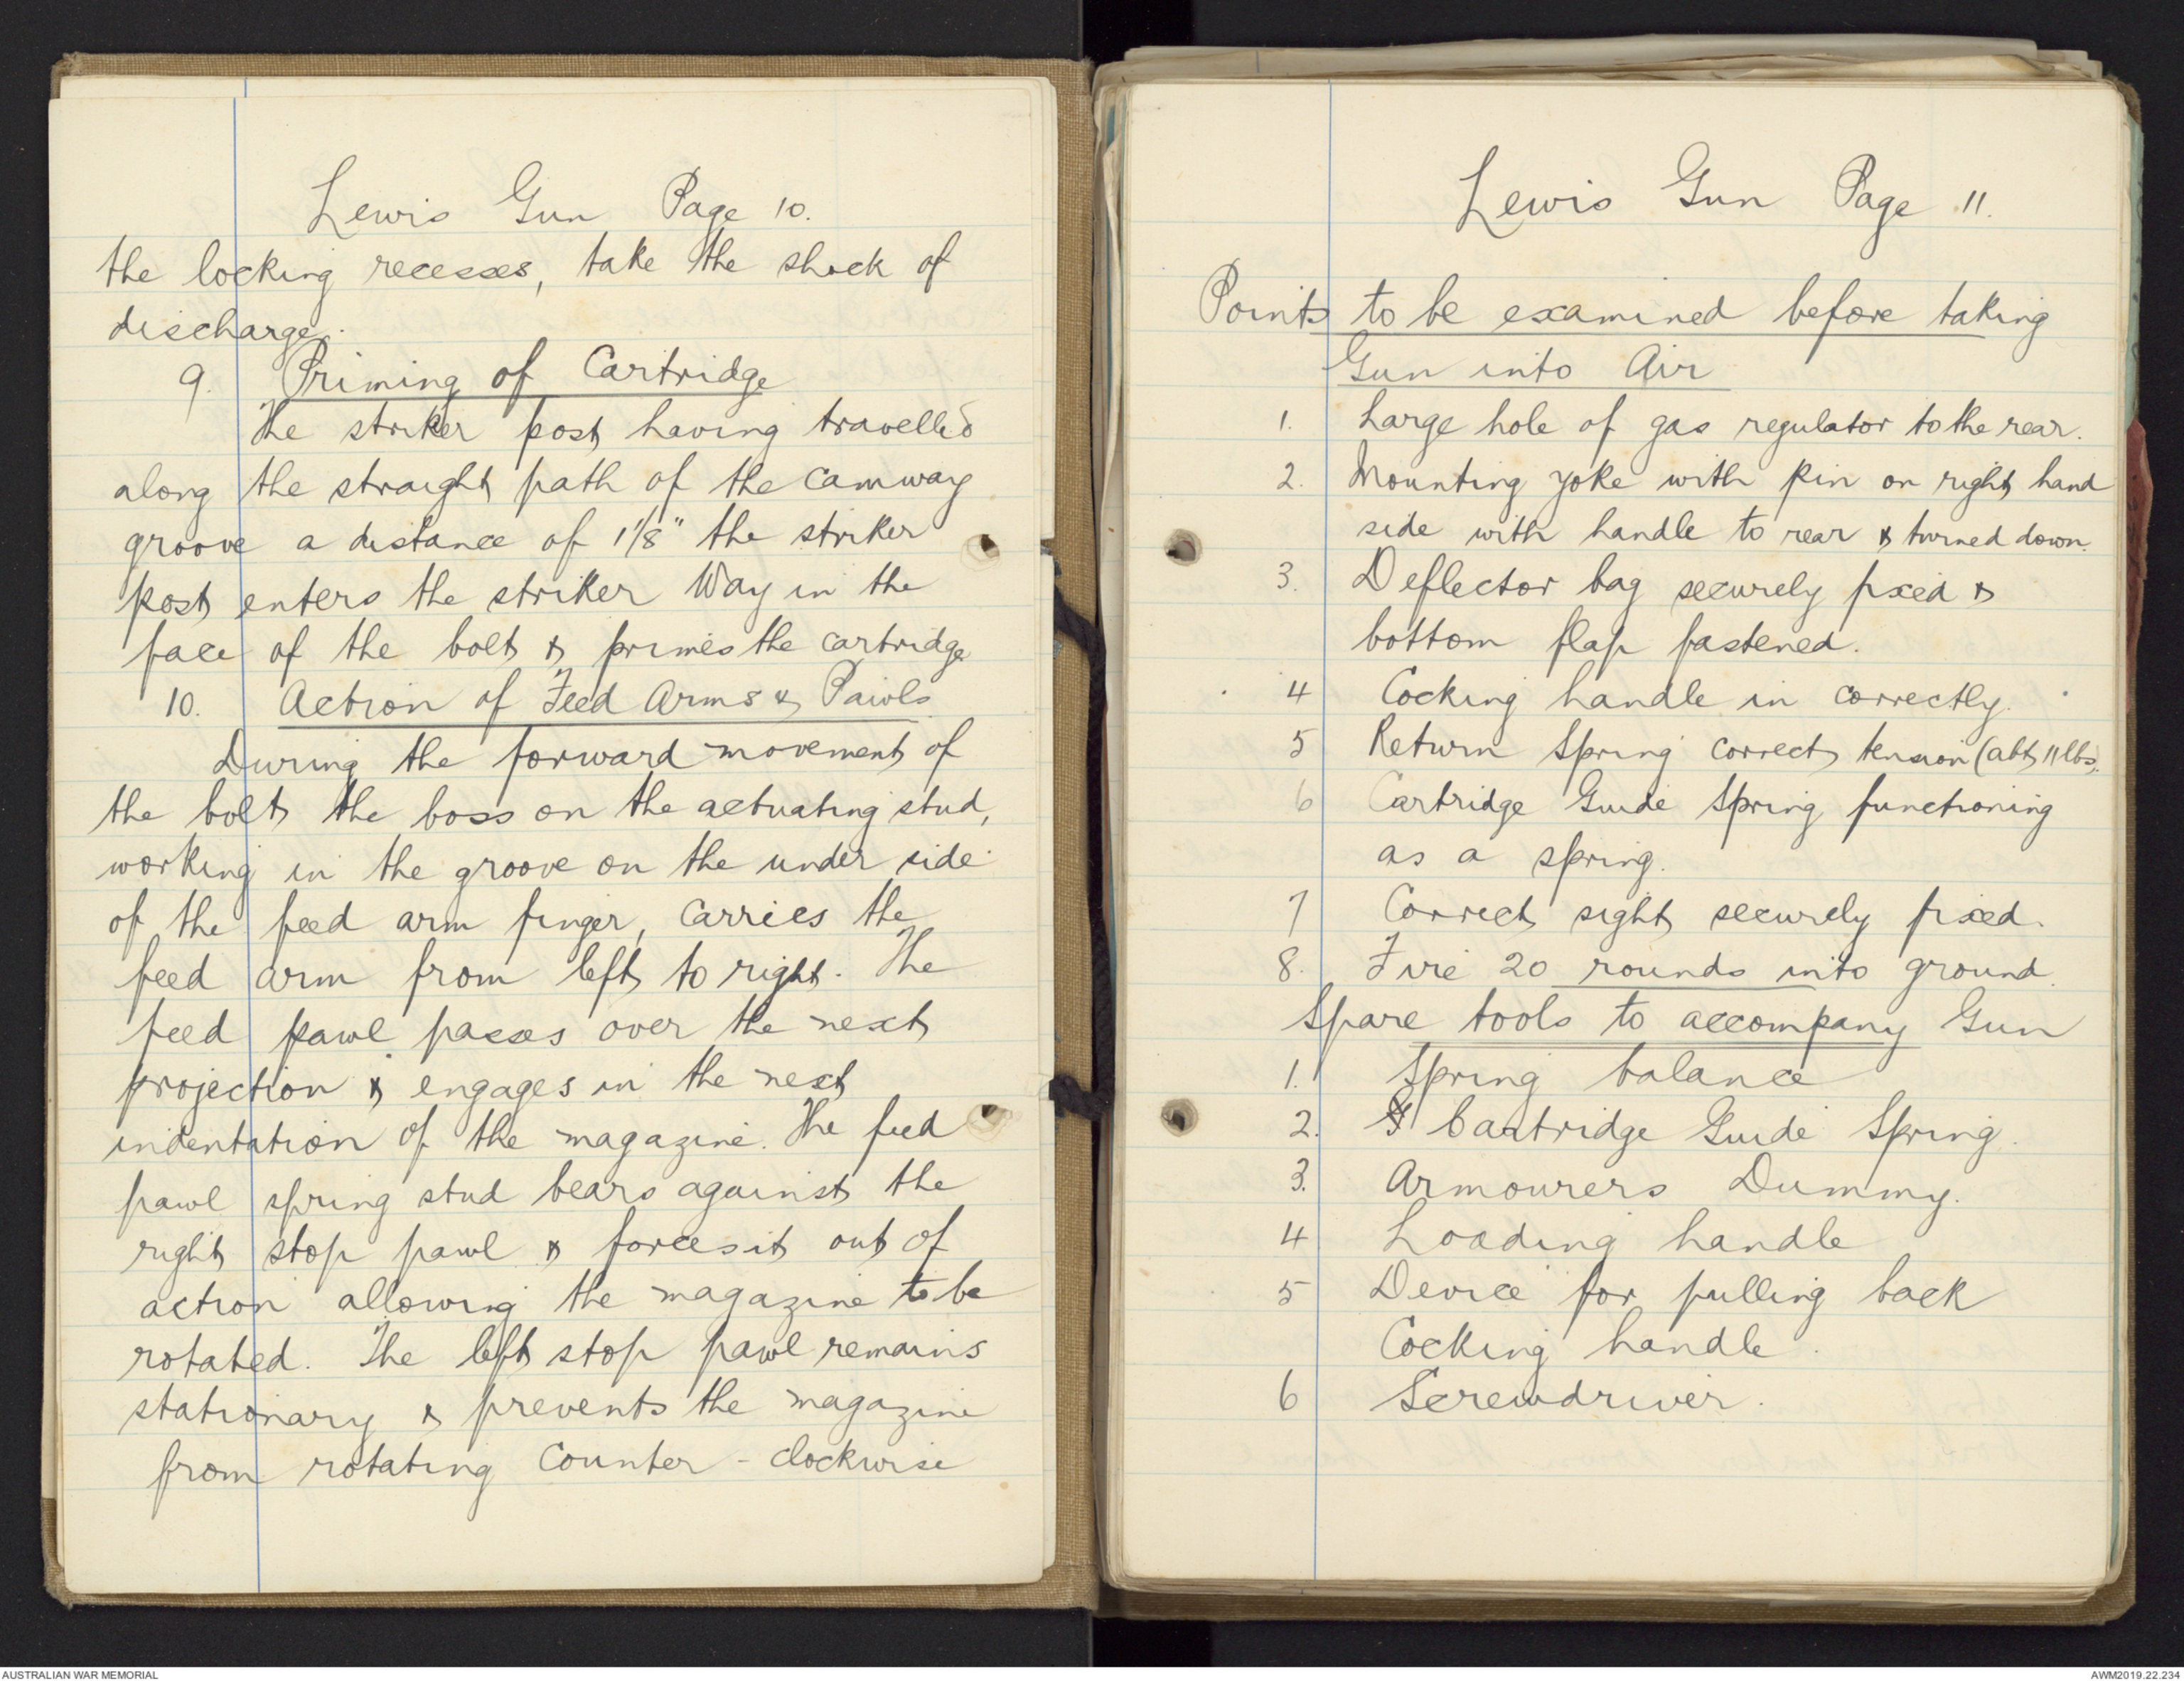 Lewis Gun Page 10.
the locking recesses, take the shock of
discharge.
9. Priming of Cartridge
The striker post having travelled
along the straight path of the camway
groove a distance of 1 1/8" the striker
post enters the striker Way in the
face of the bolt & primes the cartridge
10. Action of Feed Arms & Pawls
During the forward movement of
the bolt the boss on the actuating stud,
working in the groove on the under side
of the feed arm finger, carries the
feed arm from left to right. The
feed pawl passes over the next
projection & engages in the next
indentation of the magazine. The feed
pawl spring stud bears against the
right stop pawl & forces it out of
action allowing the magazine to be
rotated. The left stop pawl remains
stationary & prevents the magazine
from rotating Counter-clockwise
Lewis Gun Page 11.
Points to be examined before taking
Gun into Air
1. Large hole of gas regulator to the rear.
2. Mounting yoke with pin on right hand
side with handle to rear & turned down.
3. Deflector bag securely fixed &
bottom flap fastened.
4 Cocking handle in correctly.
5 Return Spring correct tension (abt 11 lbs).
6 Cartridge Guide Spring functioning
as a spring.
7 Correct sight securely fixed.
8. Fire 20 rounds into ground.
Spare tools to accompany Gun
1. Spring balance
2. Cartridge Guide Spring.
3. Armourers Dummy.
4 Loading handle
5 Device for pulling back
Cocking handle.
6 Screwdriver.
AUSTRALIAN WAR MEMORIAL
AWM2019.22.234